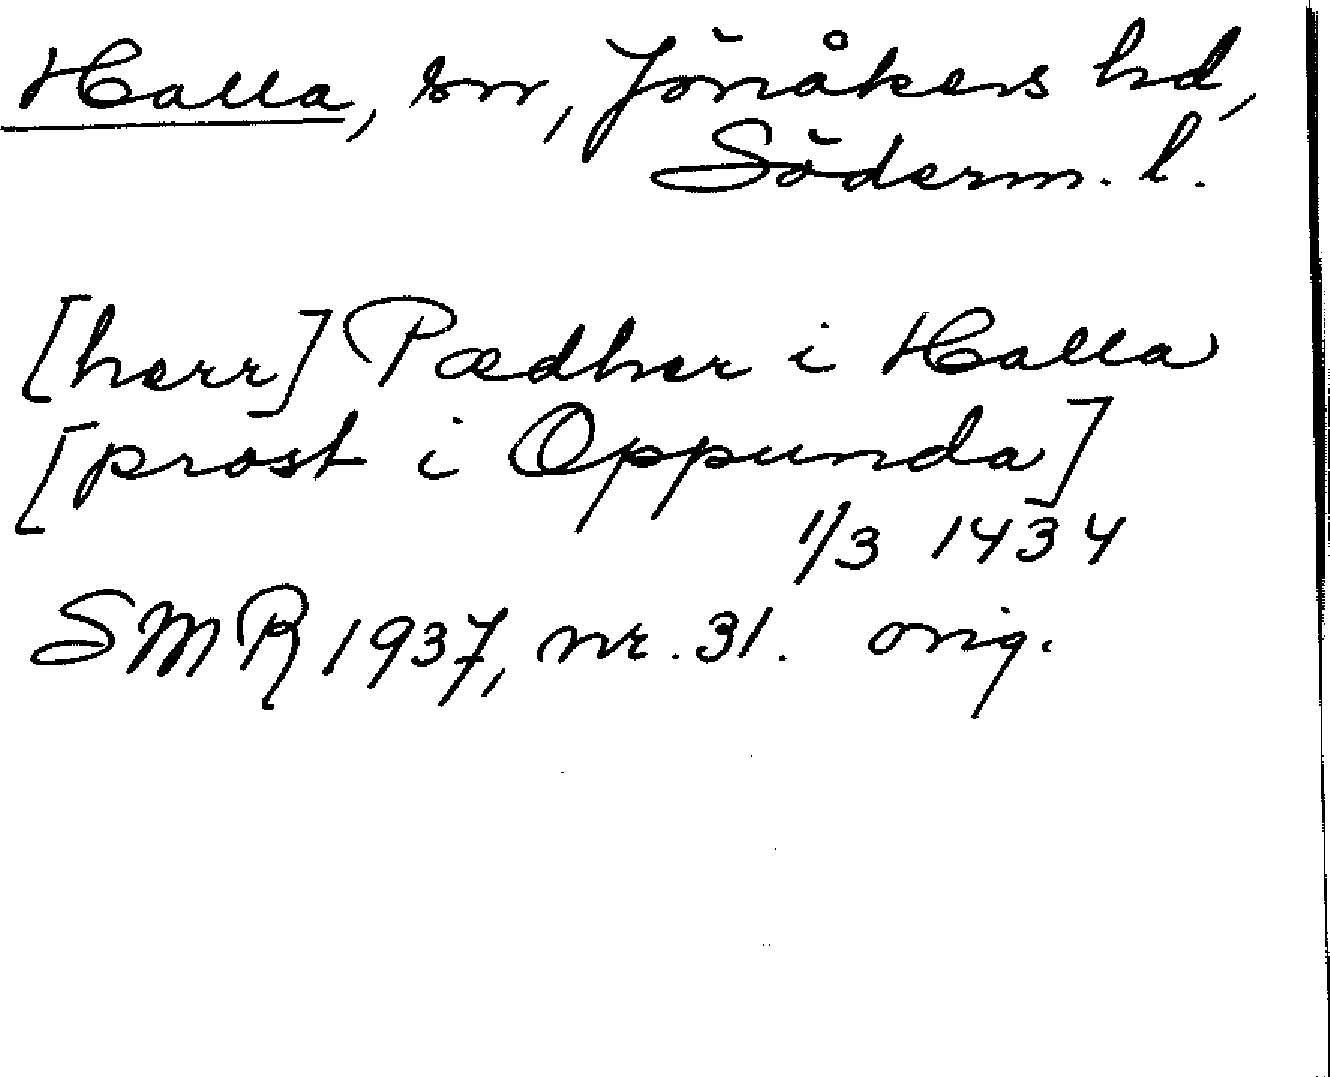 Halla, sn, Jönåkers hd,
Söderm. l.
[herr] Pædher i Halla
[prost i Oppunda]
1/3 1434
SMR 1937, nr. 31. orig.